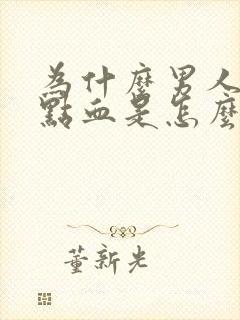 為什麼男人
點血是怎麼
董新光